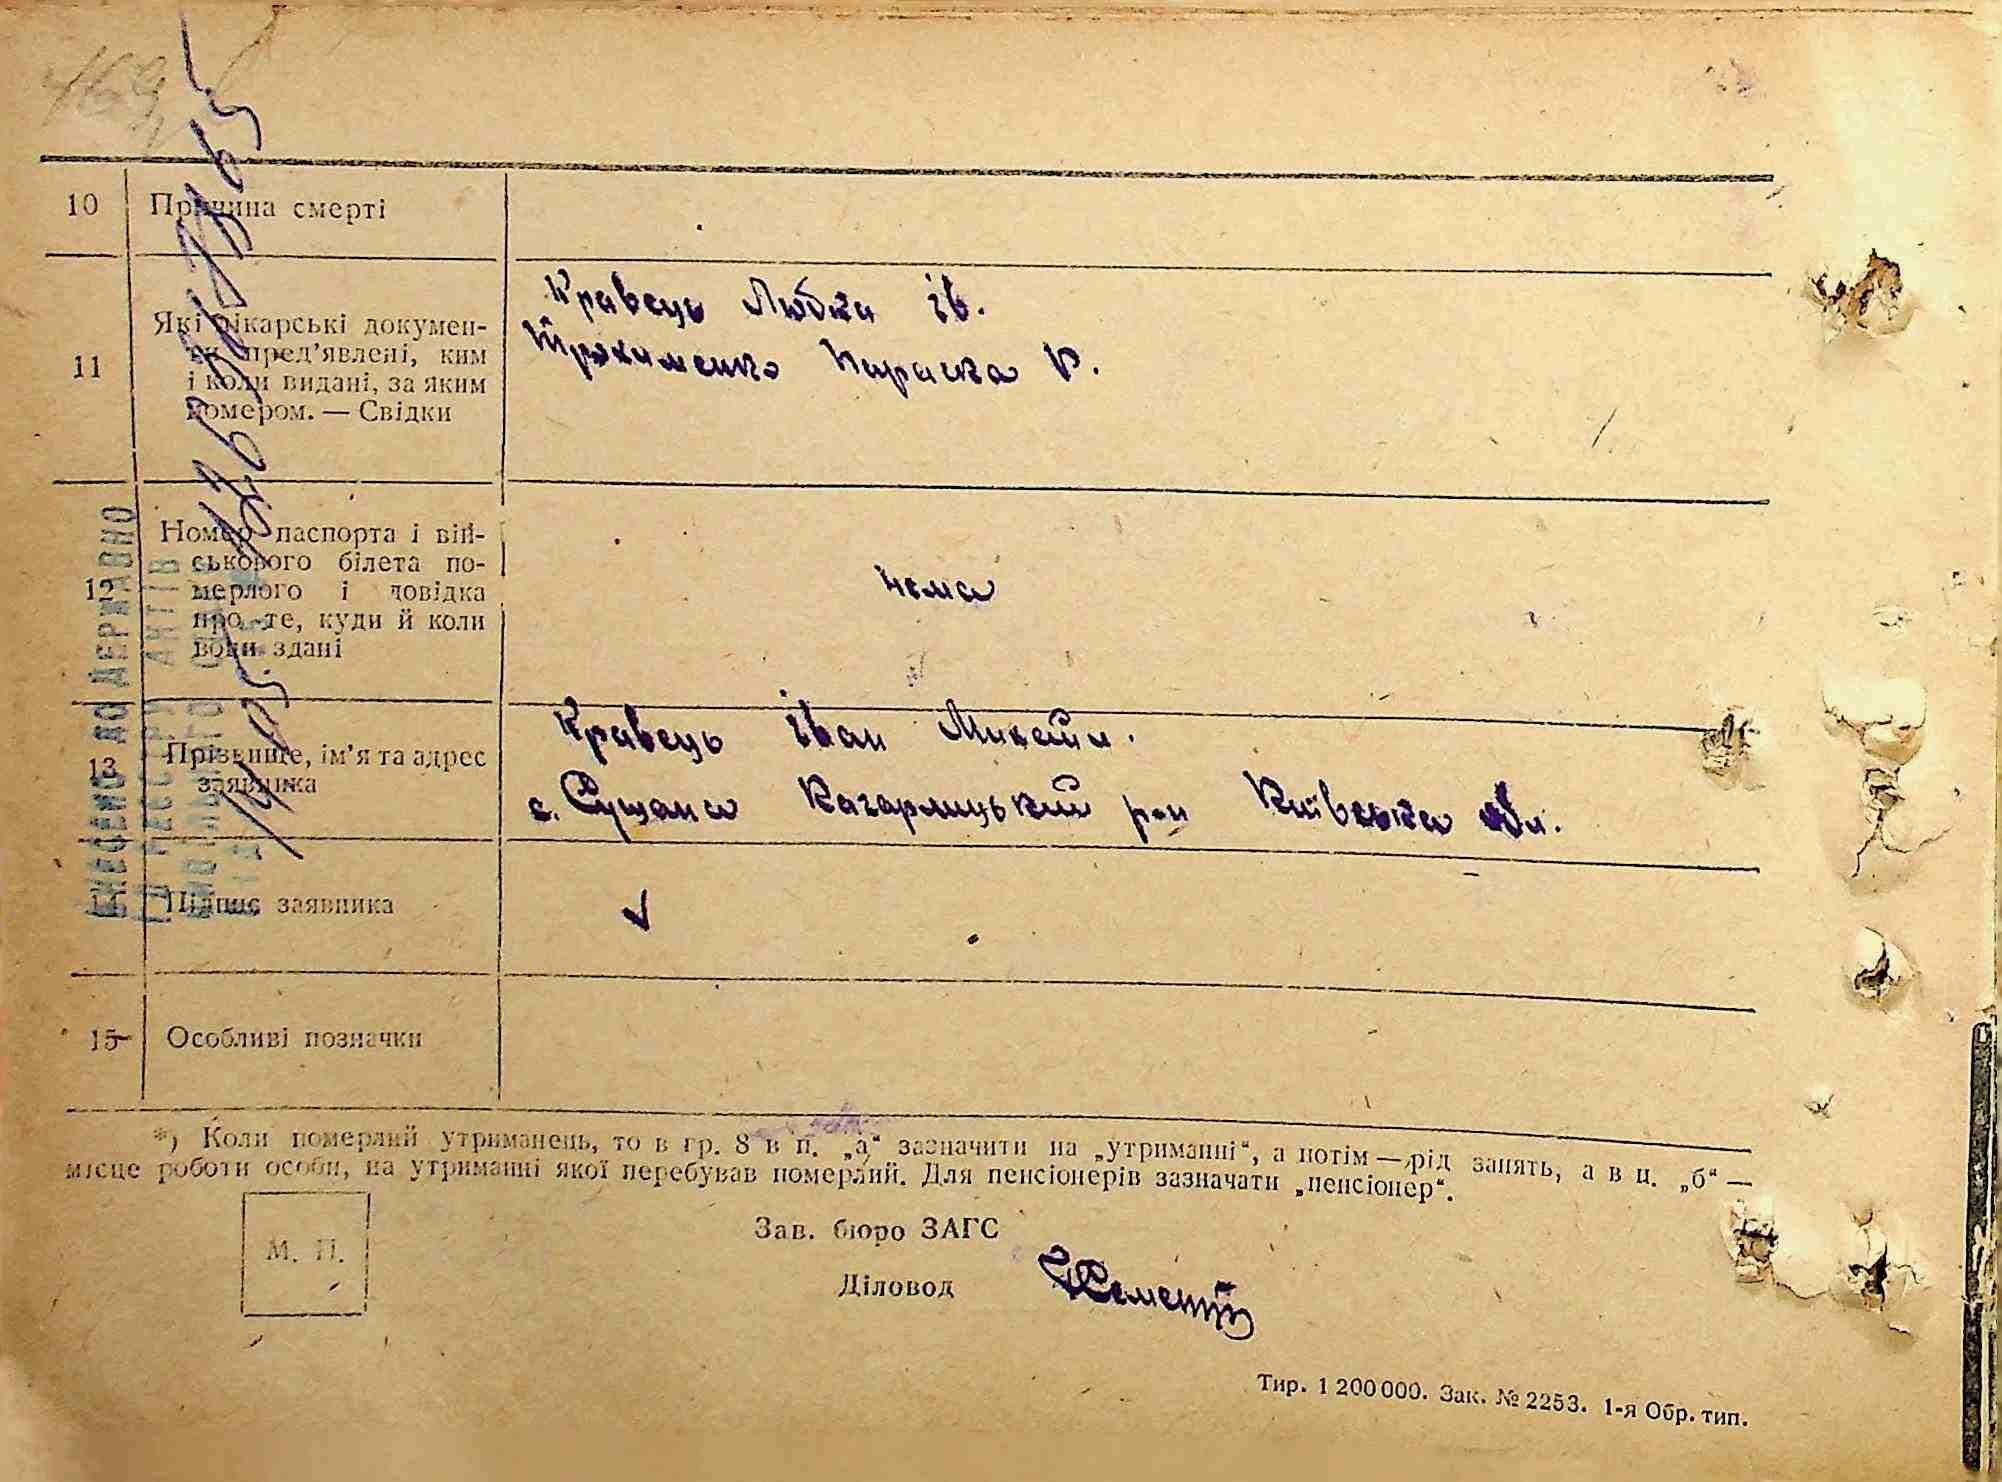 169
10 Причина смерті
11 Які лікарські докумен-
ти пред’явлені, ким
і коли видані, за яким
номером. — Свідки
Кравець Любка ів.
Трохименко Параска Р.
12 Номер паспорта і вій-
ськового білета по-
мерлого і довідка
про те, куди й коли
вони здані
нема
13 Прізвище, ім’я та адрес
заявника
Кравець іван
с. Сущана Кагарлицький р-н Київська обл.
14 Підпис заявника
15 Особливі позначки
ВНЕСЕНО ДО ДЕРЖАВНО
ГО РЕЄСТРУ АКТІВ
*) Коли померлий утриманець, то в гр. 8 в п. „а“ зазначити на „утриманні“, а потім — рід занять, а в п. „б“ —
місце роботи особи, на утриманні якої перебував померлий. Для пенсіонерів зазначати „пенсіонер“.
М. П.
Зав. бюро ЗАГС
Діловод
Тир. 1 200 000. Зак. № 2253. 1-я Обр. тип.